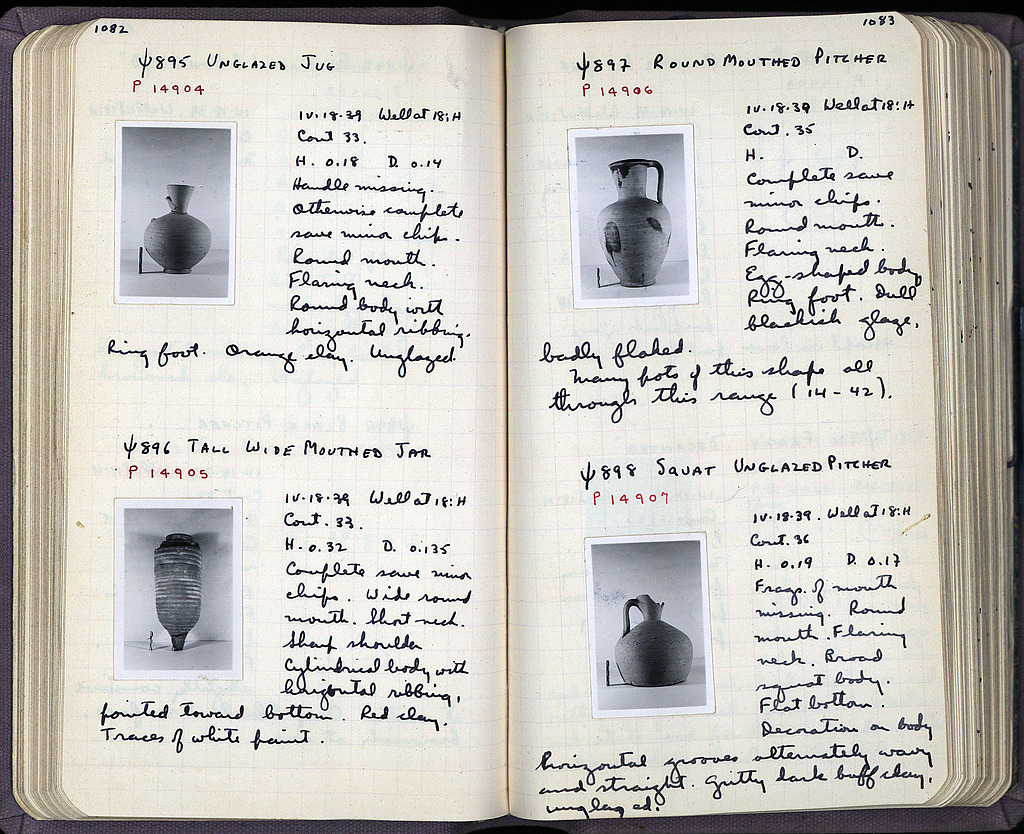 1082
ψ895 UNGLAZED JUG
P 14904
IV.18.39 Well at 18:H
Cont. 33.
H. 0.18 D. 0.14
Handle missing.
Otherwise complete
save minor chips.
Round mouth.
Flaring neck.
Round body with
horizontal ribbing.
Ring foot. Orange clay. Unglazed.
ψ896 TALL WIDE MOUTHED JAR
P 14905
IV.18.39 Well at 18:H
Cont. 33.
H. 0.32 D. 0.135
Complete save minor
chips. Wide round
mouth. Short neck.
Sharp shoulder
Cylindrical body with
horizontal ribbing,
pointed toward bottom. Red clay.
Traces of white paint.
1083
ψ897 ROUND MOUTHED PITCHER
P 14906
IV.18.39 Well at 18:H
Cont. 35
H. D.
Complete save
minor chips.
Round mouth.
Flaring neck.
Egg-shaped body
Ring foot. Dull
blackish glaze,
badly flaked.
Many pots of this shape all
through this range (14-42).
ψ898 SQUAT UNGLAZED PITCHER
P 14907
IV.18.39. Well at 18:H
Cont. 36
H. 0.19 D. 0.17
Frags. of mouth
missing. Round
mouth. Flaring
neck. Broad
squat body.
Flat bottom.
Decoration on body
horizontal grooves alternately wavy
and straight. Gritty dark buff clay,
unglazed.